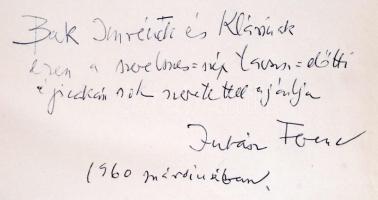 Bak Imrének és Klárinak
ezen a szerelmes=szép tavasz=előtti
éjszakán sok szeretettel ajánlja
Juhász Ferenc
1960 márciusában.